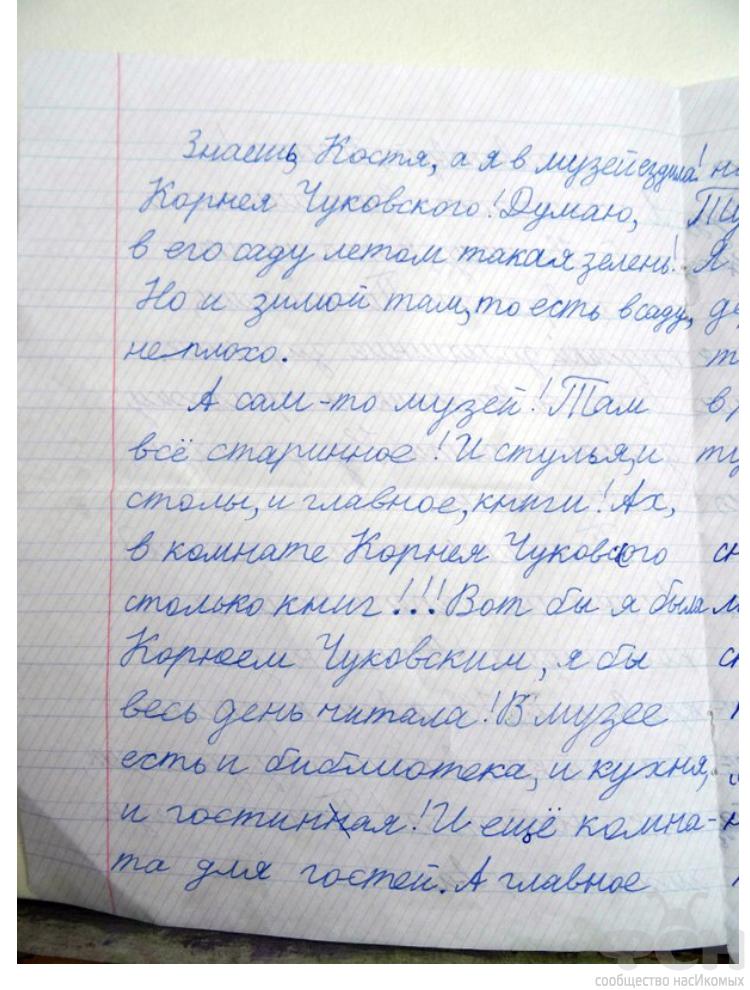 Знаешь, Костя, а я в музей ездила!
Корнея Чуковского! Думаю,
в его саду летом такая зелень!
Но и зимой там, то есть в саду,
неплохо.
А сам-то музей! Там
всё старинное! И стулья, и
столы, и главное, книги! Ах,
в комнате Корнея Чуковского
столько книг!!! Вот бы я была
Корнеем Чуковским, я бы
весь день читала! В музее
есть и библиотека, и кухня,
и гостиная! И ещё комна-
та для гостей. А главное
ФСН
сообщество насИкомых